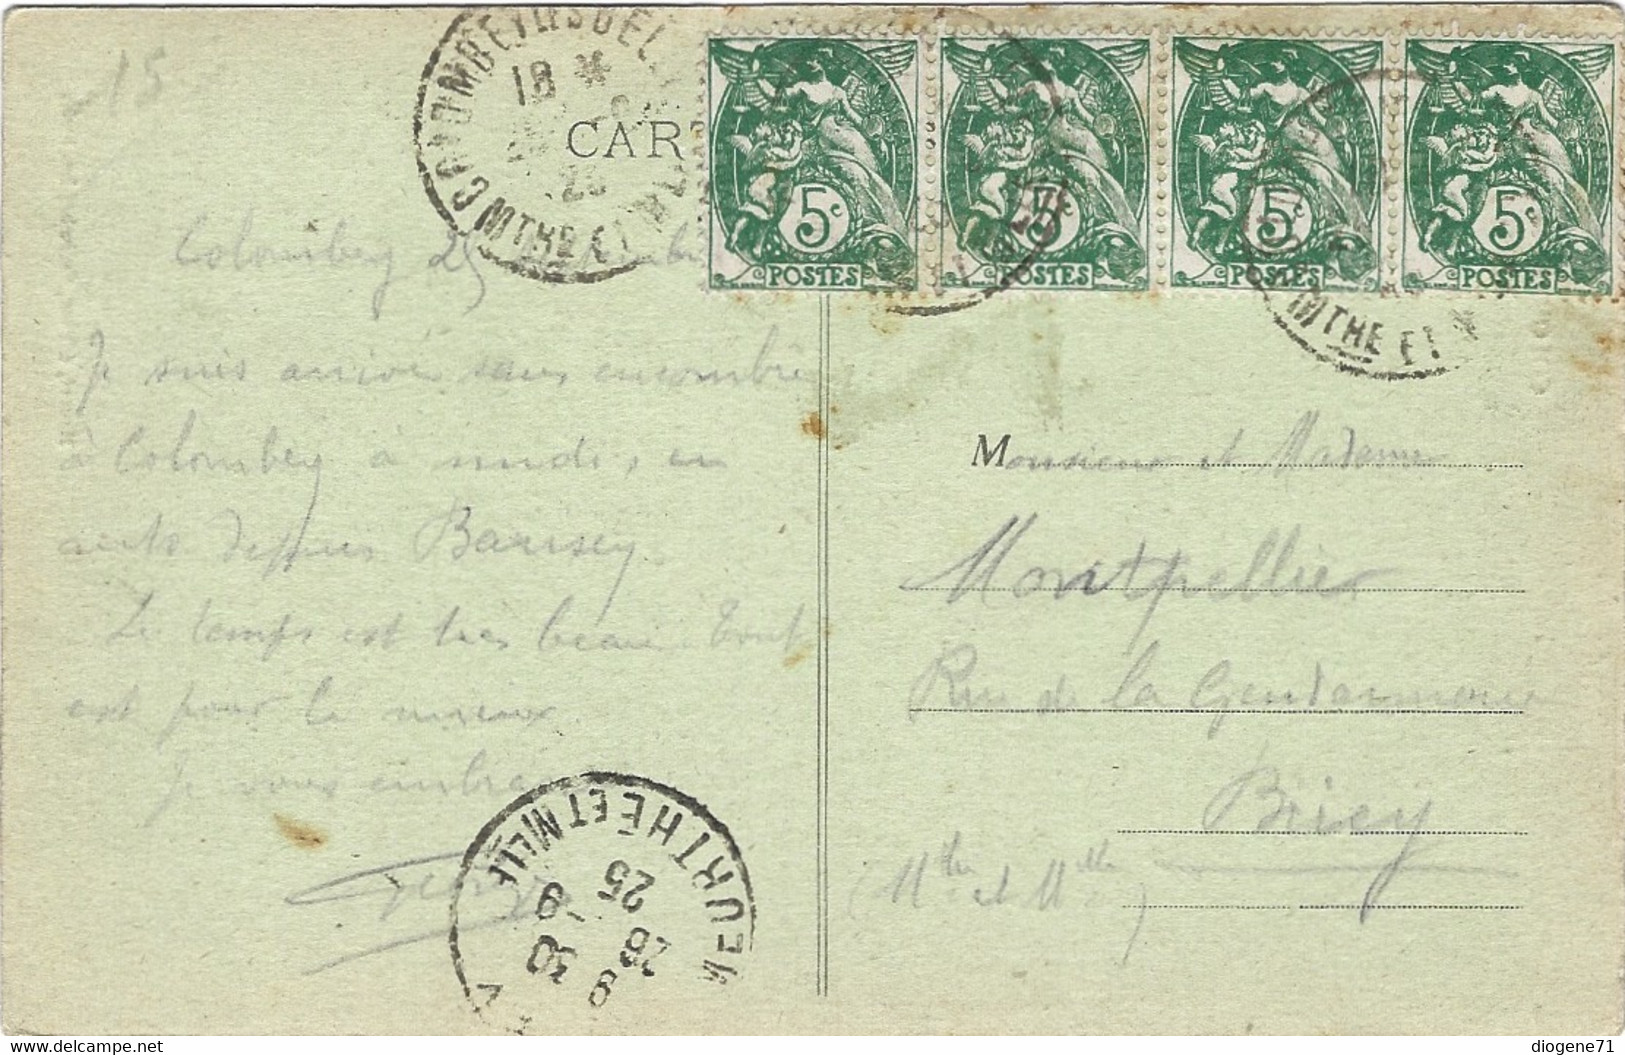 15
COLOMBEY
18 *
25
MTHE ET M
CART
5c
POSTES
5c
POSTES
5c
POSTES
5c
POSTES
MTHE ET M
Colombey 25
Je suis arrivé sans encombre
à Colombey à midi, en
auto depuis Barisey
Le temps est très beau. Tout
est pour le mieux
Je vous embra
Georg
Monsieur et Madame
Montpellier
Rue de la Gendarmerie
Briey
(Mthe et Mlle)
MEURTHE ET MLLE
9 30
26 -9
25
diogene71